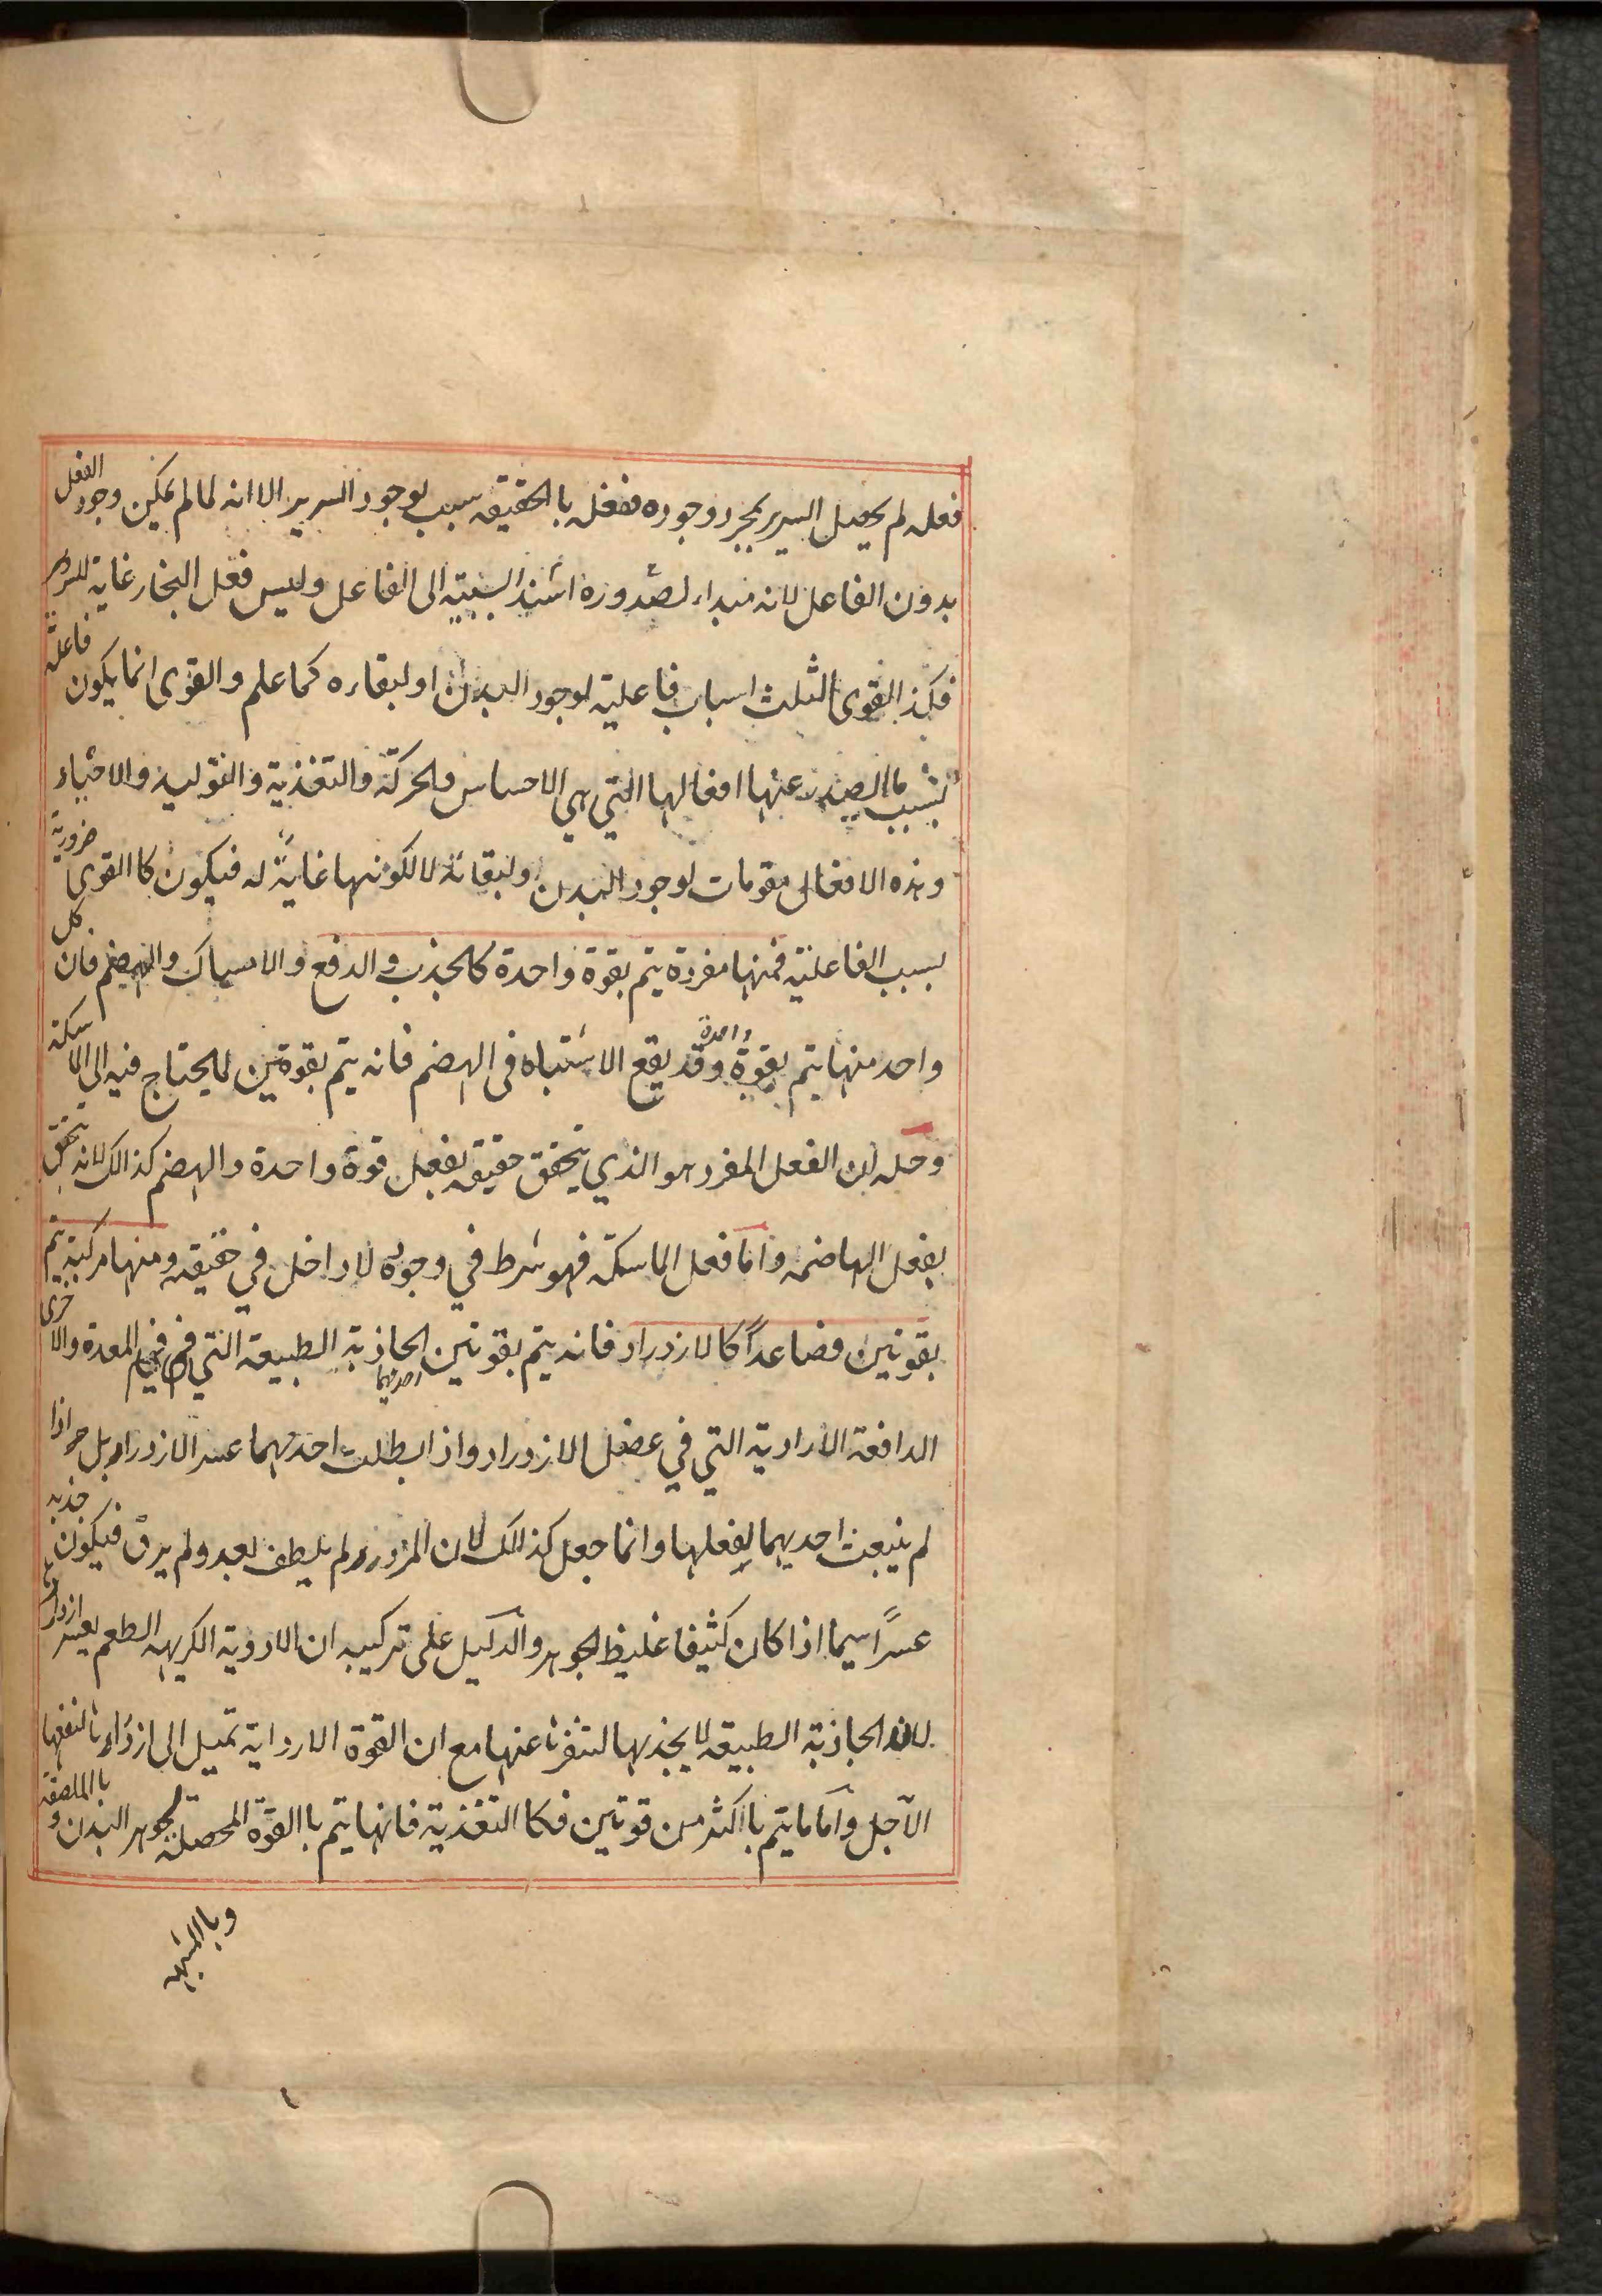 فعله لم يحصل السرير بمجرد وجوده ففعله بالحقيقه سبب لوجود السرير الا انه لما لم يمكن وجود الفعل
بدون الفاعل لانه مبداء لصدوره اشند السببية الى الفاعل وليس فعل النجار غاية للسرير
فكذ القوى الثلث اسباب فاعلية لوجود البدن او لبقاءه كما علم والقوى انما يكون فاعلة
بسبب ما الصدر عنها افعالها التي هي الاحساس والحركة والتغذية والتوليد والاحياء
وهذه الافعال مقومات لوجود البدن او لبقائه لا لكونها غايةً له فيكون كا القوى ضرورية
بسبب الفاعلية فمنها مفردة يتم بقوة واحدة كالجذب والدفع والامساك والهضم فان كل
واحد منها يتم بقوة واحدة وقد يقع الاشتباه في الهضم فانه يتم بقوتين لما يحتاج فيه الى الماسكة
وحله ان الفعل المفرد هو الذي يتحقق حقيقه بفعل قوة واحدة والهضم كذالك لانه يتحقق
بفعل الهاضمه واما فعل الماسكة فهو شرط في وجوده لا داخل في حقيقه ومنها مركبة يتم
بقوتين فصاعداً كا لازدراد فانه يتم بقوتين احديهما الجاذبة الطبيعه التي في فم المعدة والاخرى
الدافعة الارادية التي في عضل الازدراد واذا بطلت احديهما عسر الازدراد بل هو اذا
لم ينبعث احديهما لفعلها وانما جعل كذالك لان المزدرد لم يلطف بعد ولم يرق فيكون جذبه
عسراً سيما اذا كان كثيفا غليظ الجوهر والدليل على تركيبه ان الادوية الكريهه الطعم يعسر ازدرادها
لان الجاذبة الطبيعه لا يجذبها لتنفرها عنها مع ان القوة الاردايه تميل الى ازدرادها لنفعها
الآجل وأما ما يتم باكثر من قوتين فكا التغذية فانها يتم با القوة المحصلة لجوهر البدن و با الملصقه
وبا المشبهه